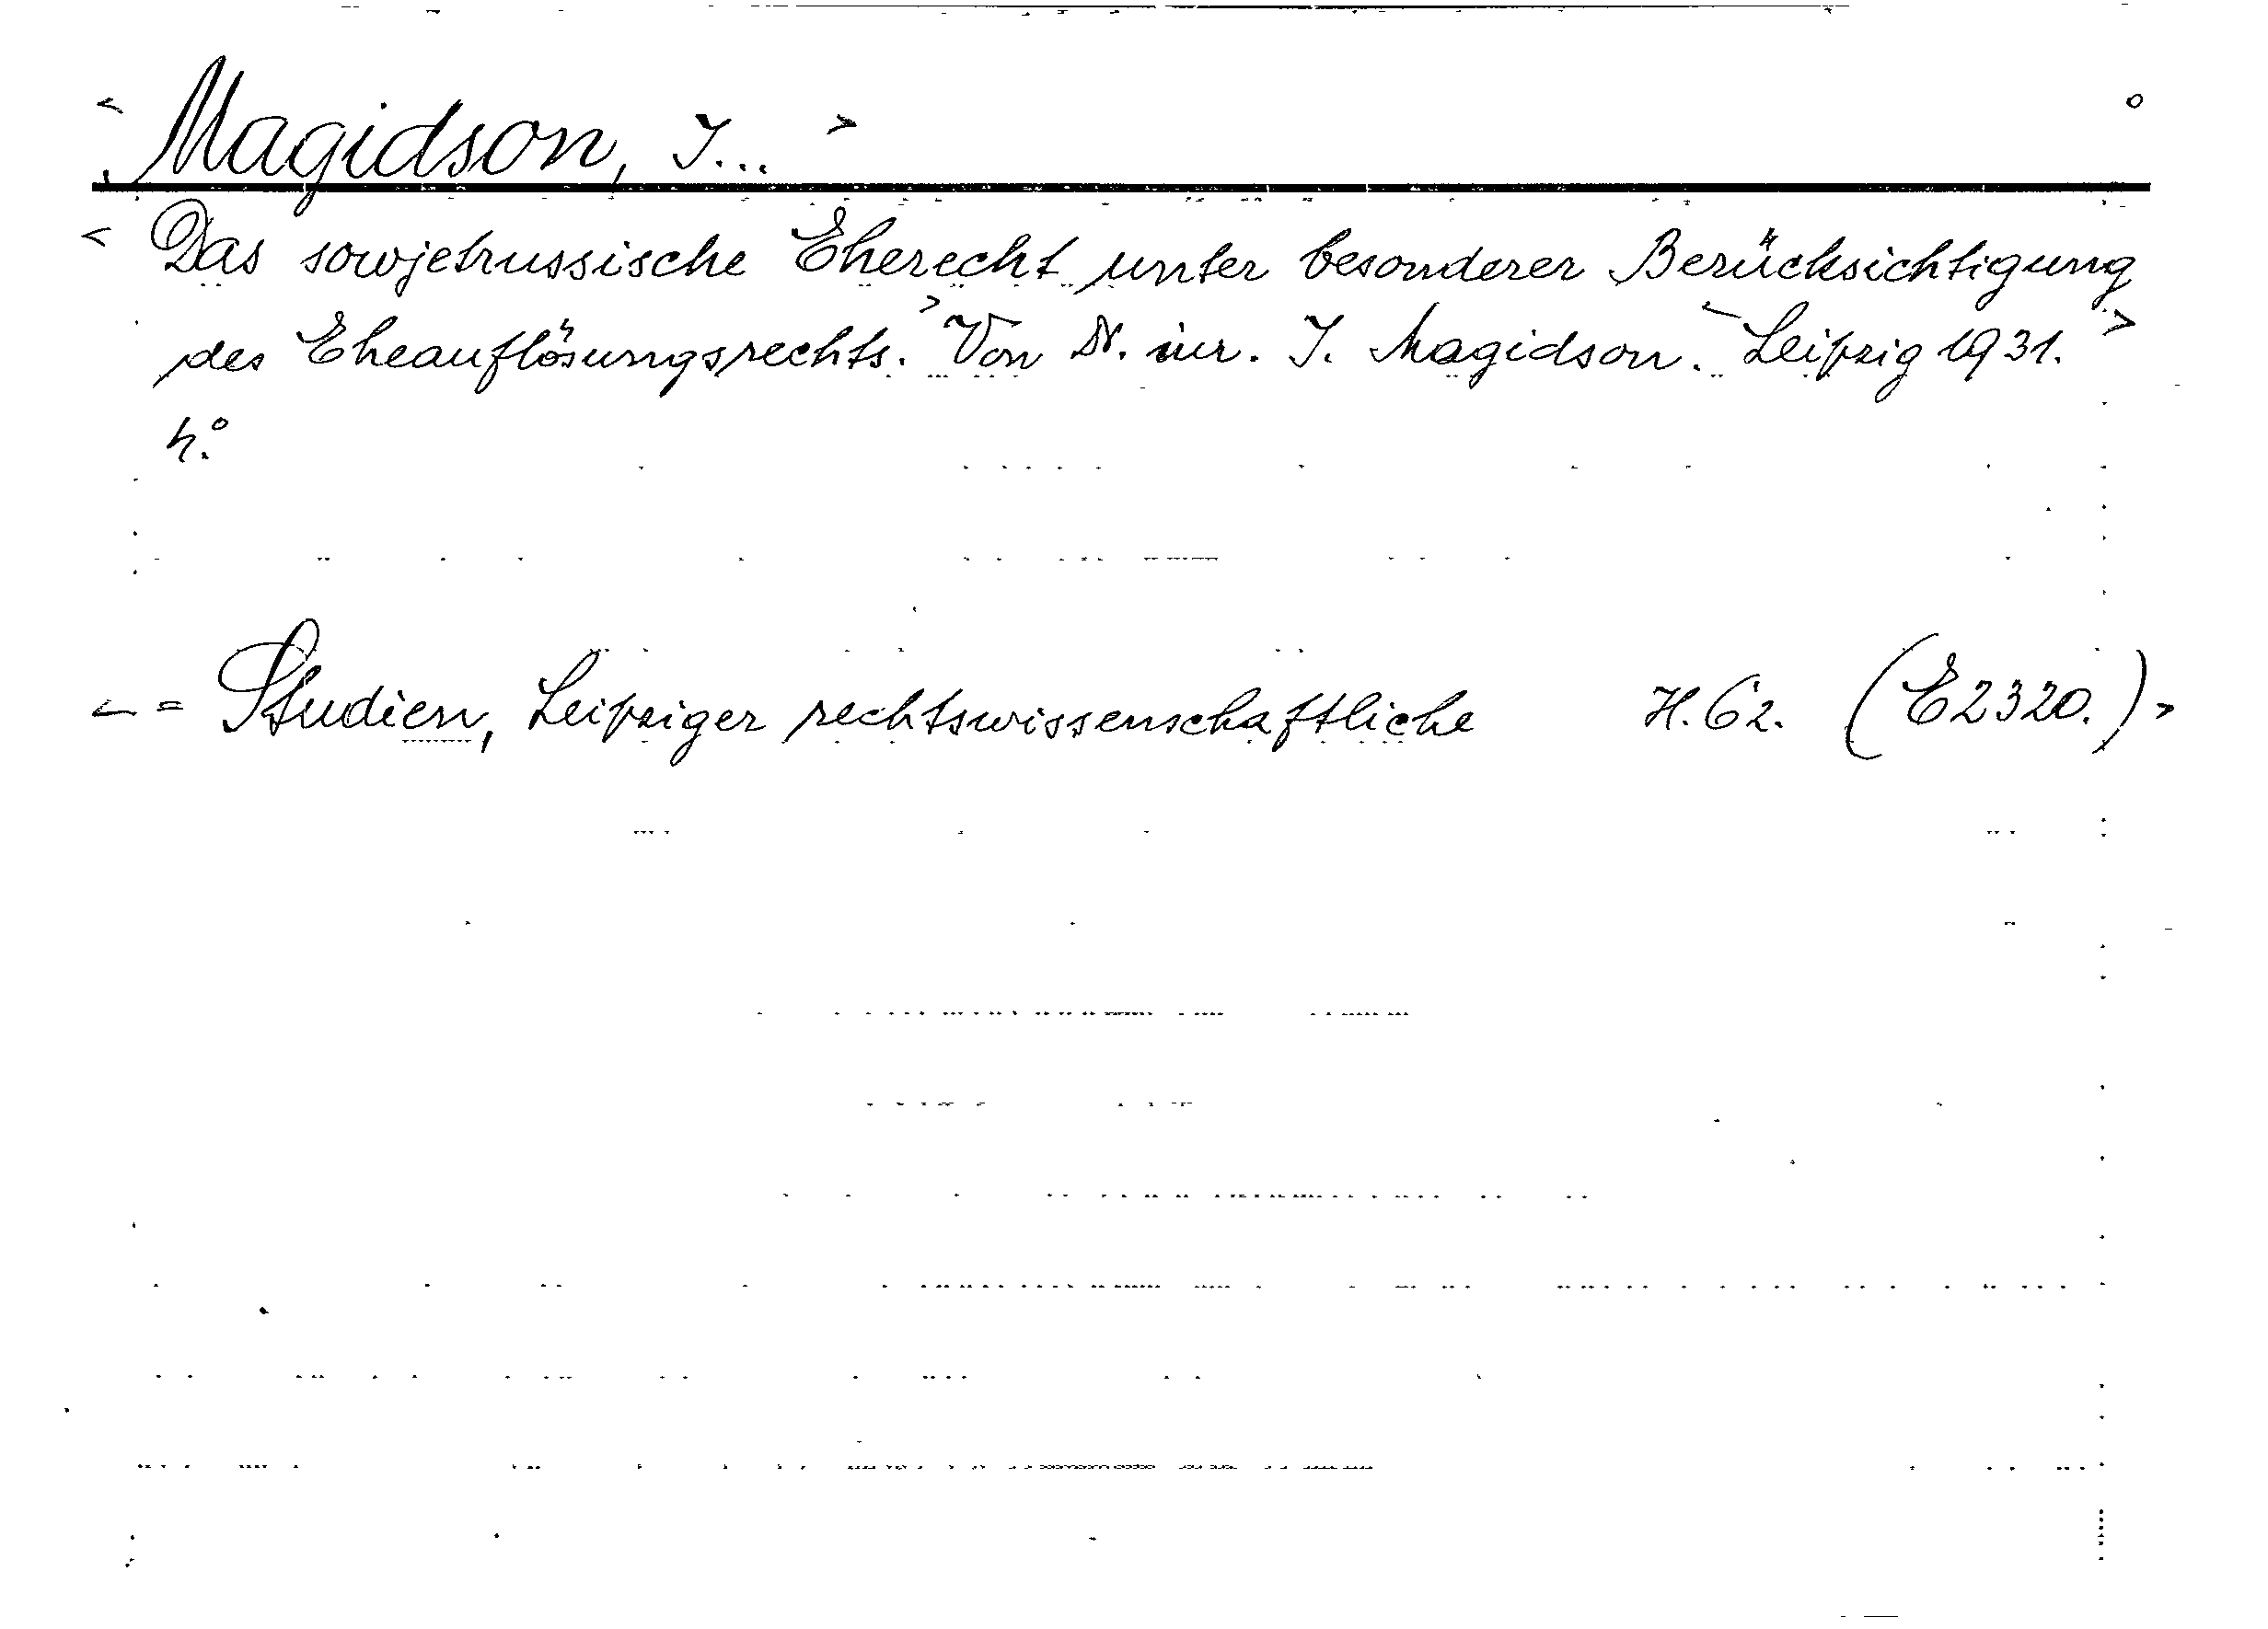 < Magidson, J... >
< Das sowjetrussische Eherecht unter besonderer Berücksichtigung
des Eheauflösungsrechts. > Von Dr. iur. J. Magidson. < Leipzig 1931. >
4.°
< = Studien, Leipziger rechtswissenschaftliche H. 62. (E2320.) >